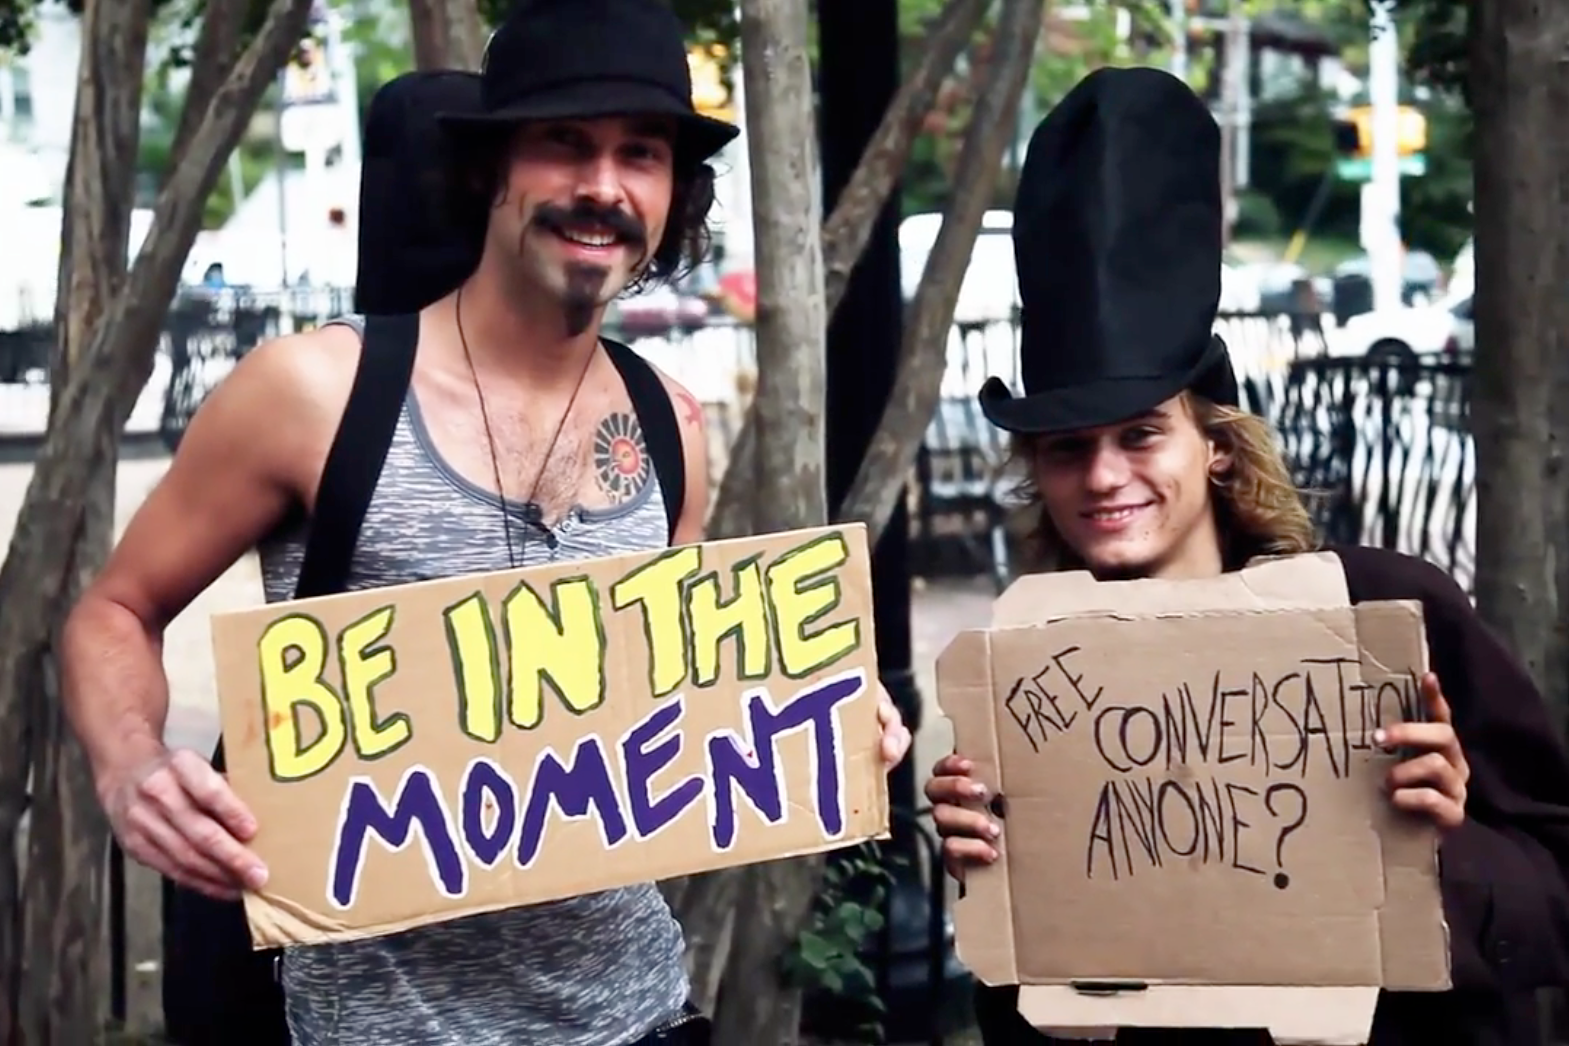 BE IN THE
MOMENT
FREE CONVERSATION
ANYONE?